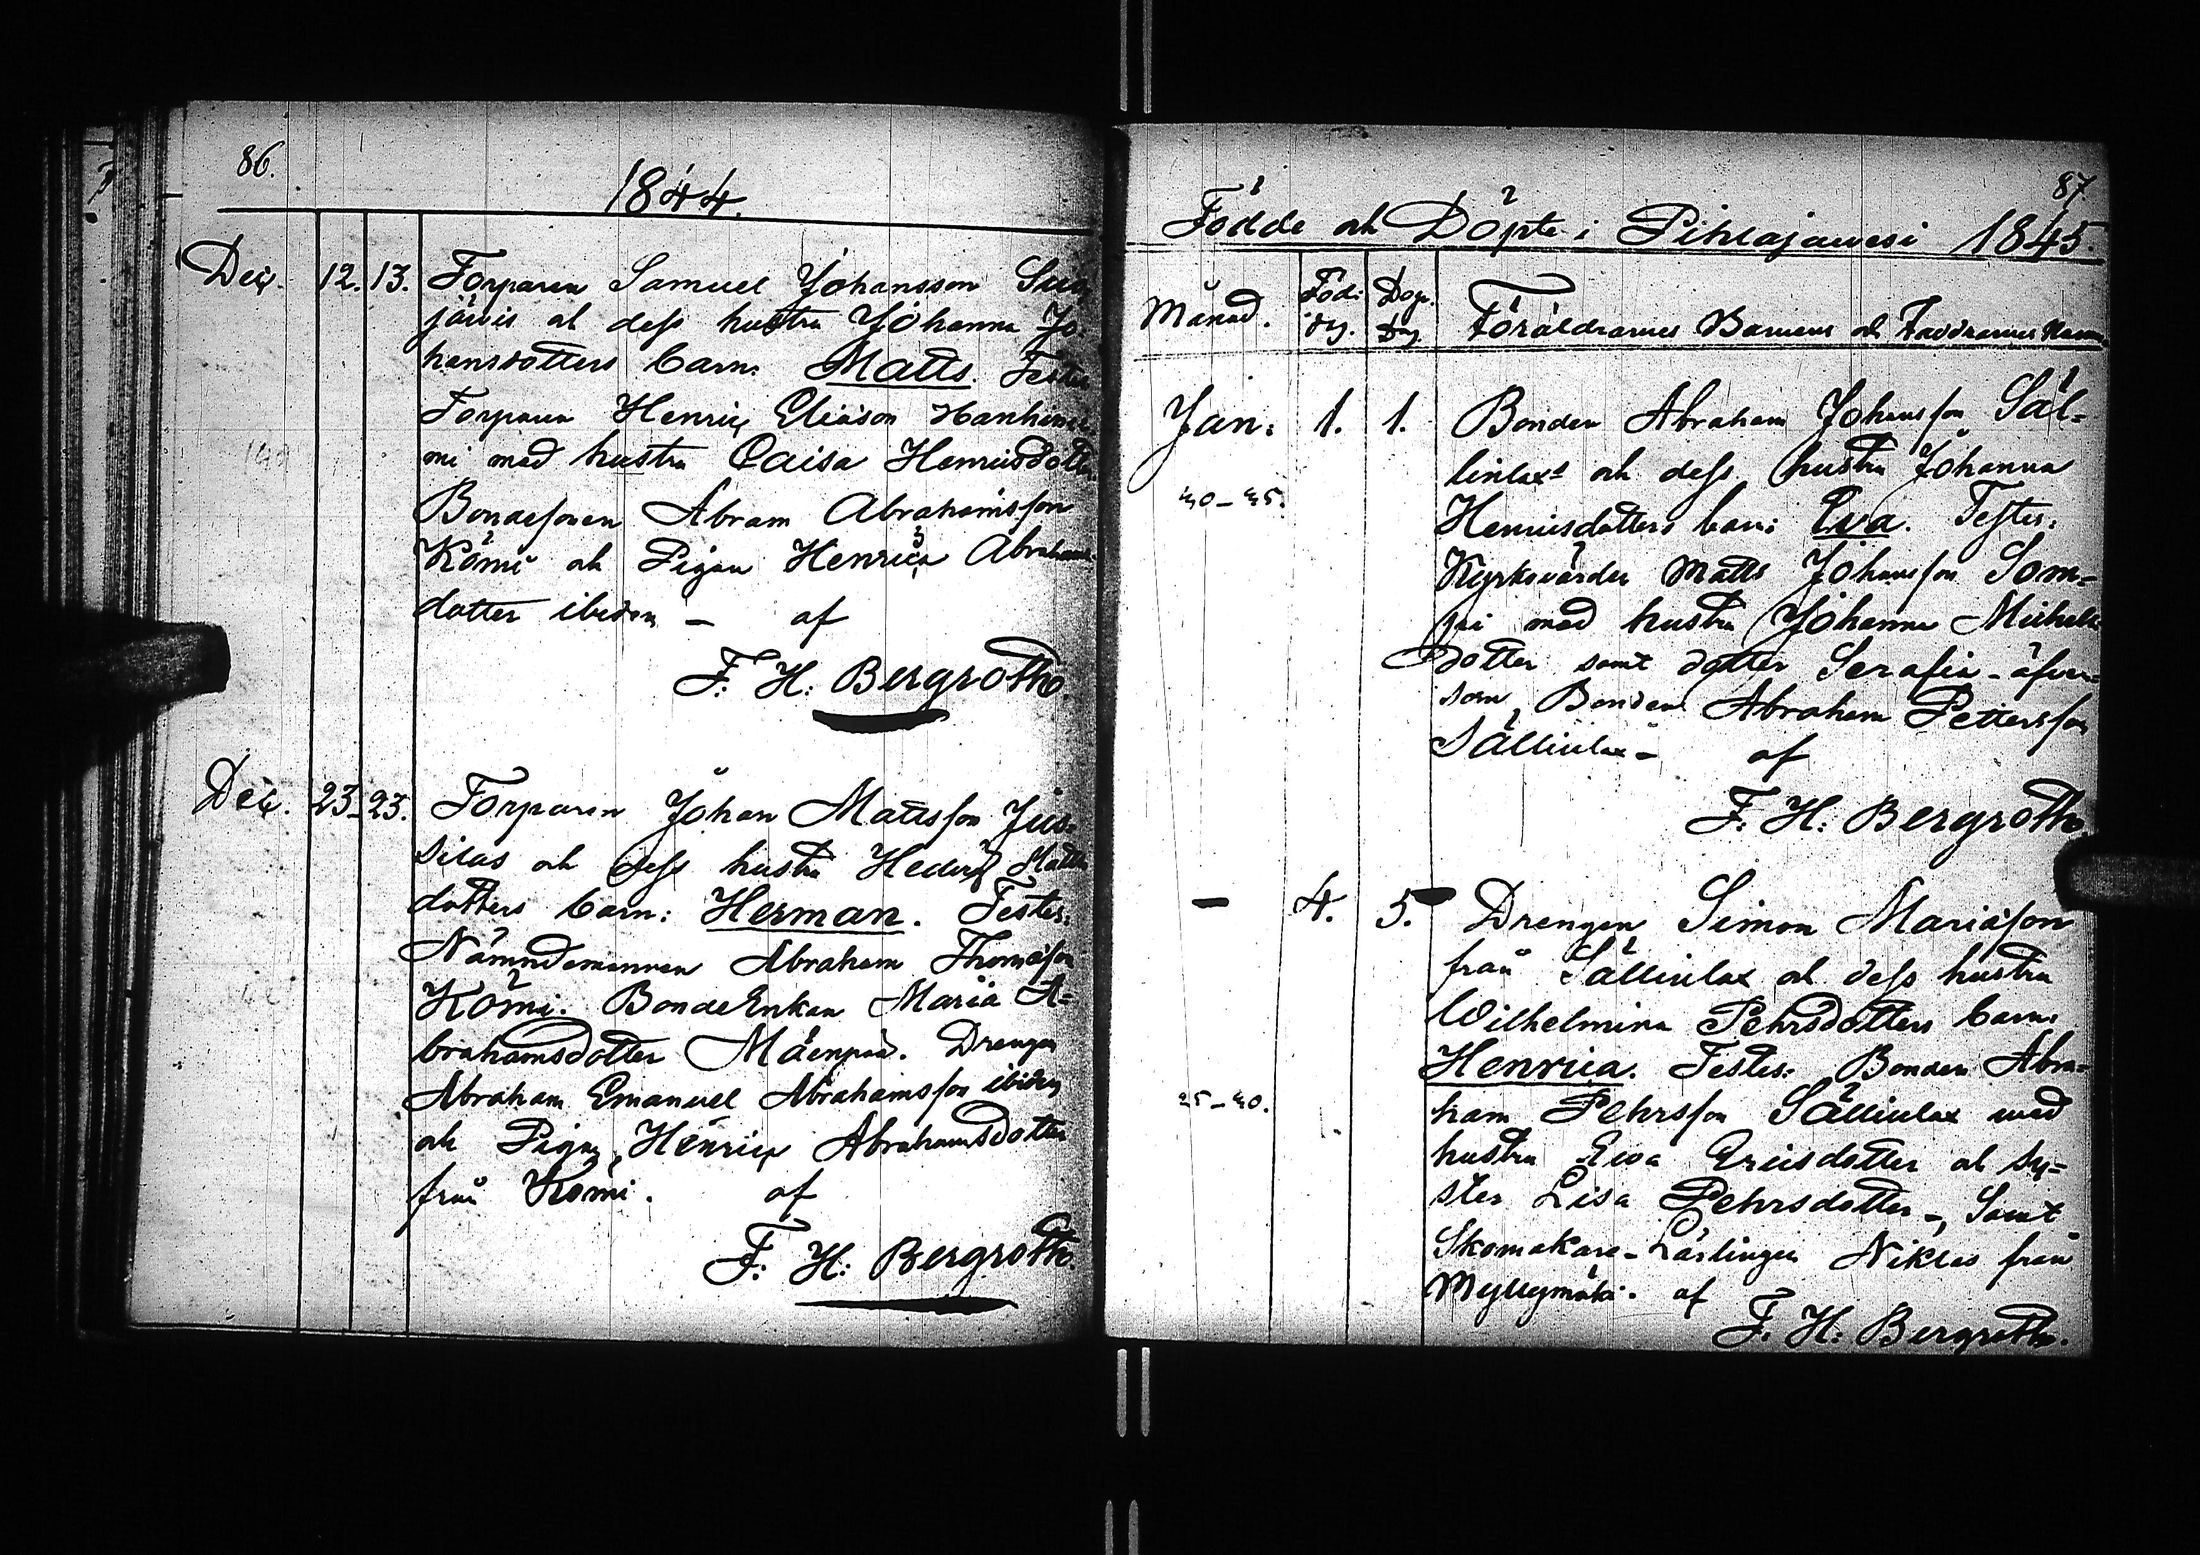 86.
1844.
Dec. 12. 13. Torparen Samuel Johansson
järvis och dess hustru Johanna Jo-
hansdotters barn: Matts. Testes
Torparen Henric Eliasson
mi med hustru Caisa Henricsdotter
Bondesonen Abram Abrahamsson
Kömi och Pigan Henrica Abrahams
dotter ibidem — af
F. H: Bergroth.
Dec. 23. 23. Torparen Johan Mattsson Jus-
silas och dess hustru Hedvig Matts
dotters barn: Herman. Testes:
Nämndemannen Abraham Thomasson
Kömi. BondeEnkan Maria A=
brahamsdotter Mäenpää. Drengen
Abraham Emanuel Abrahamsson ibidem
och Pigan Henrica Abrahamsdotter
från Kömi. af
F: H: Bergroth.
87.
Födde och Döpte i Pihlajawesi 1845.
Månad. Föd: dg. Dop. Dag. Föräldrarnes Barnens och Faddrarnes Namn
Jan: 1. 1. Bonden Abraham Johansson Säl=
linlax och dess hustru Johanna
40-45. Henricsdotters barn: Eva. Testes:
Kyrkovärden Matts Johansson Som=
pi med hustru Johanna Michels
dotter samt dotter Serafia - äfven-
som Bonden Abraham Pettersson
Sällinlax - af
F: H: Bergroth
— 4. 5. Drengen Simon Mariasson
från Sällinlax och dess hustru
Wilhelmina Pehrsdotters barn:
Henrica. Testes: Bonden Abra=
25-40. ham Pehrsson Sällinlax med
hustru Ewa Ericsdotter och Sy=
ster Lisa Pehrsdotter -, Samt
Skomakare-Lärlingen Niklas från
Myllymäki. af
F. H: Bergroth.